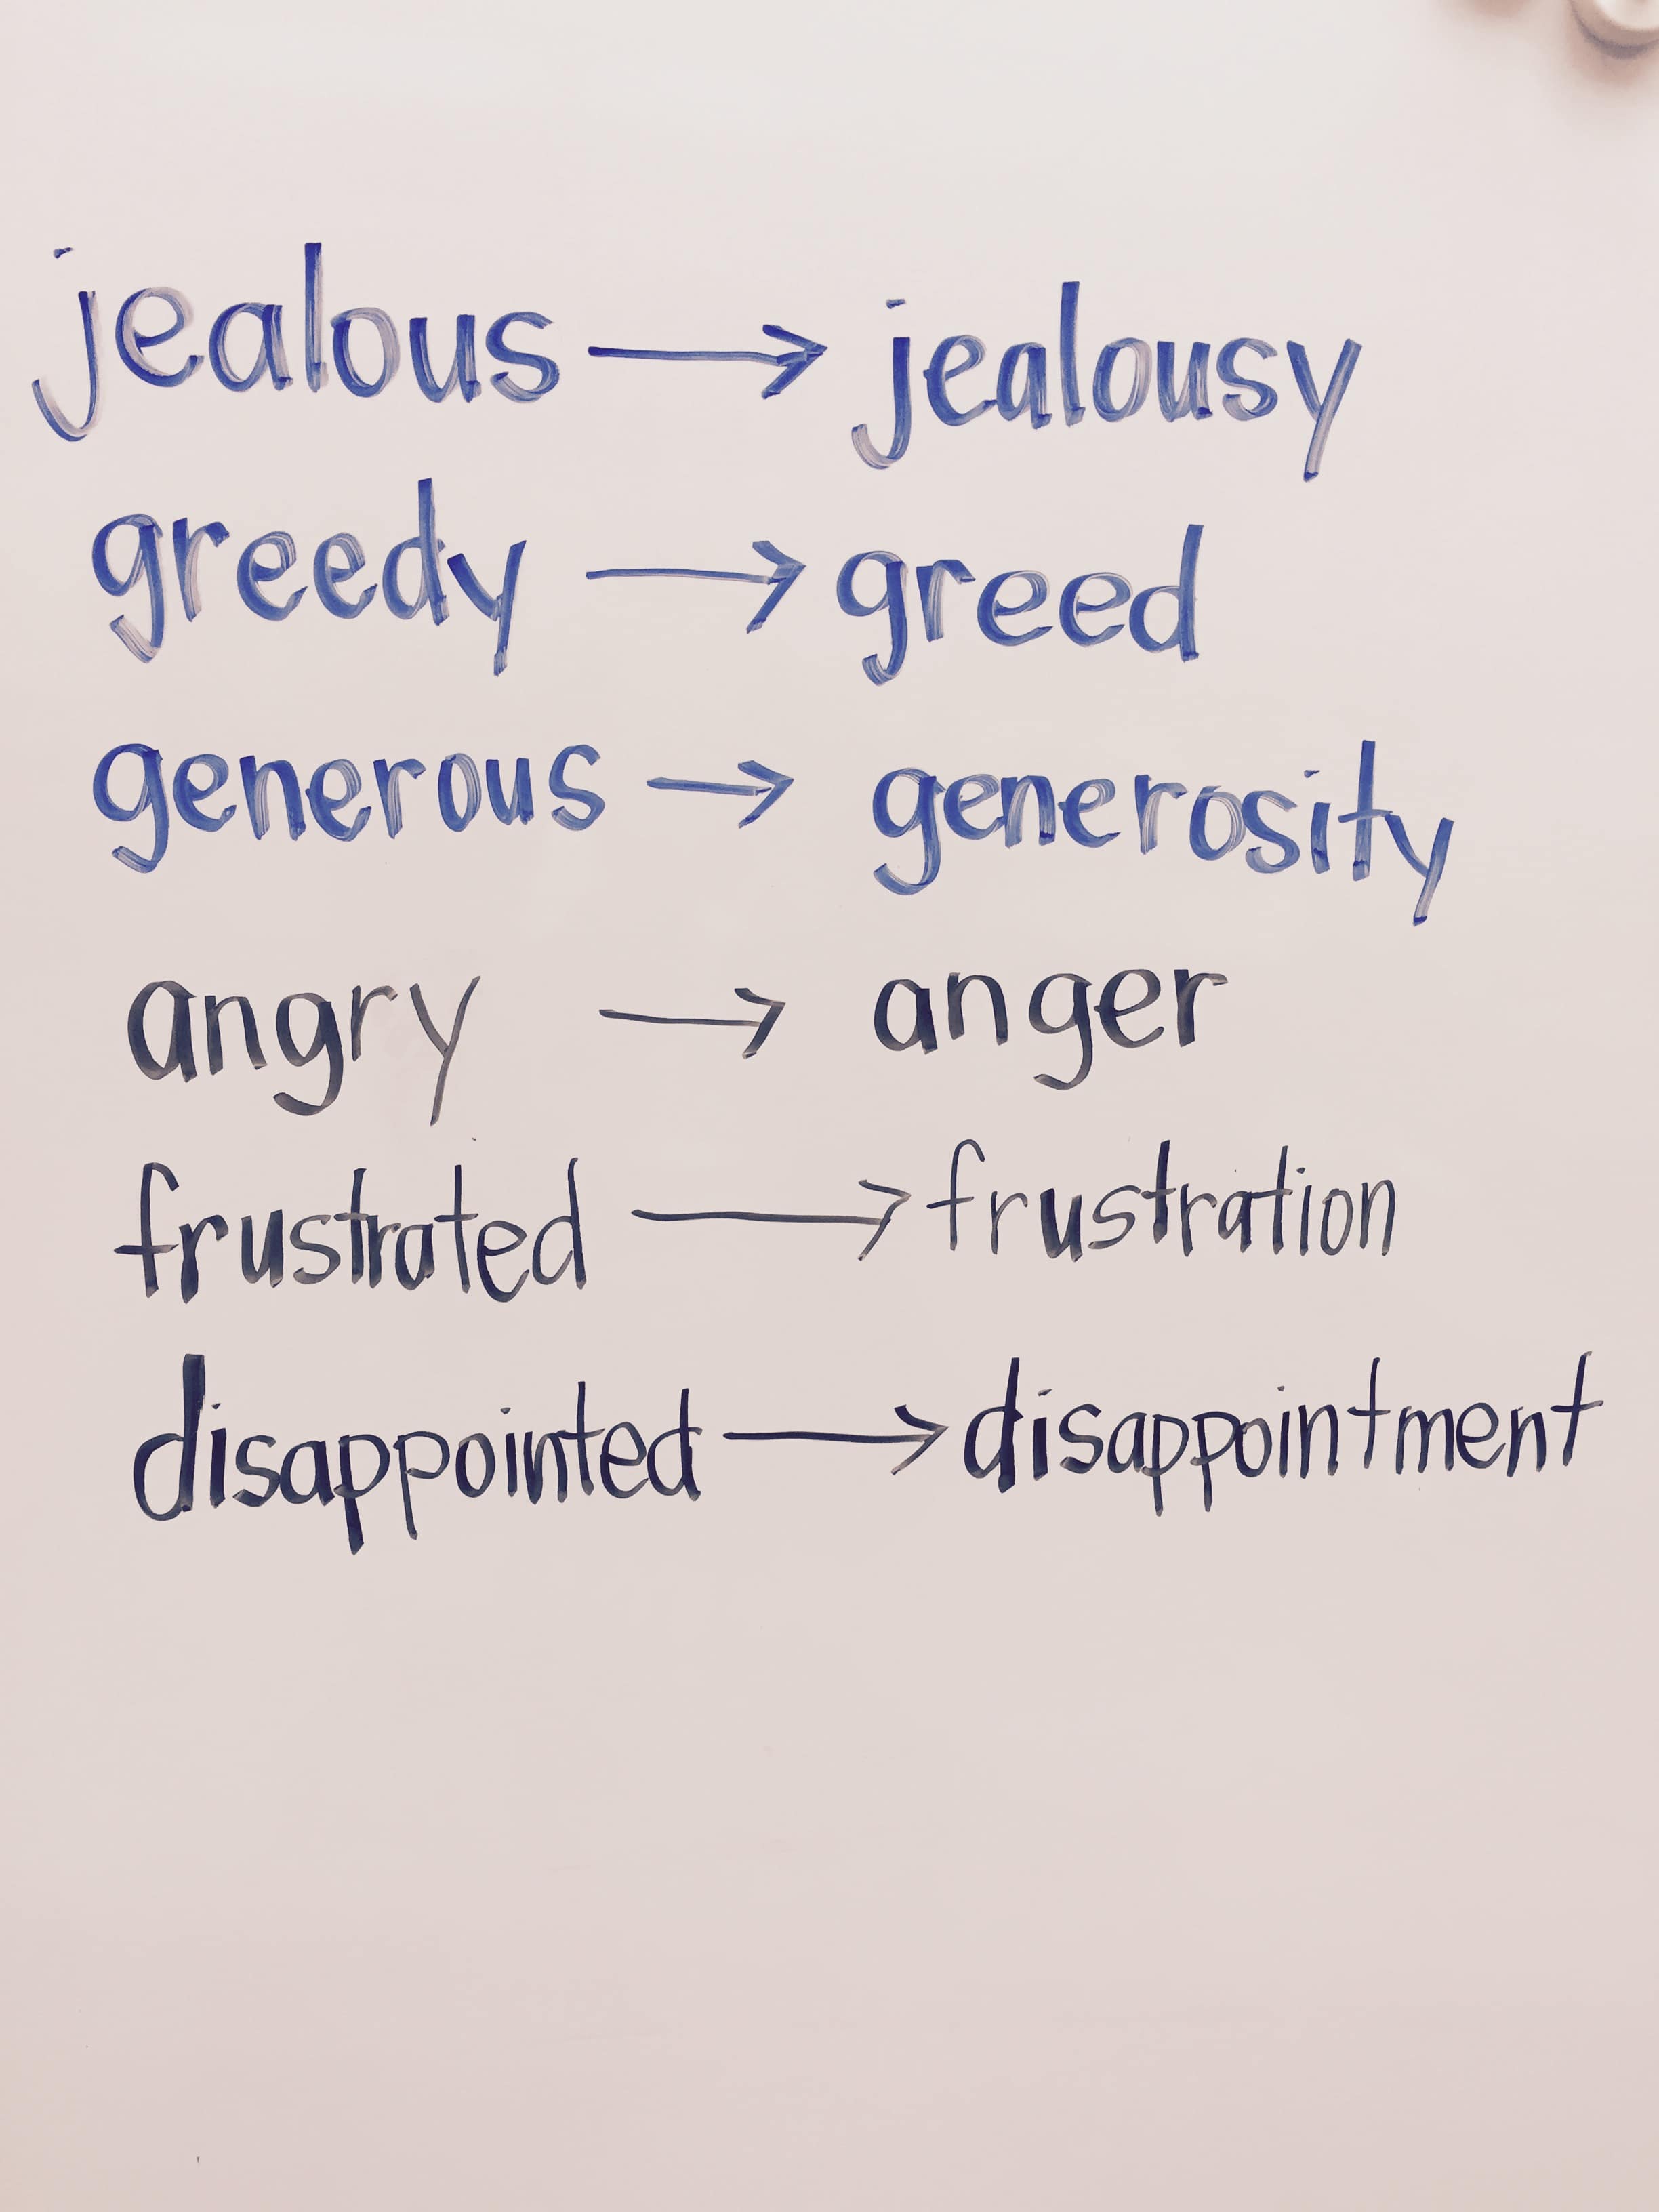 jealous → jealousy
greedy → greed
generous → generosity
angry → anger
frustrated → frustration
disappointed → disappointment